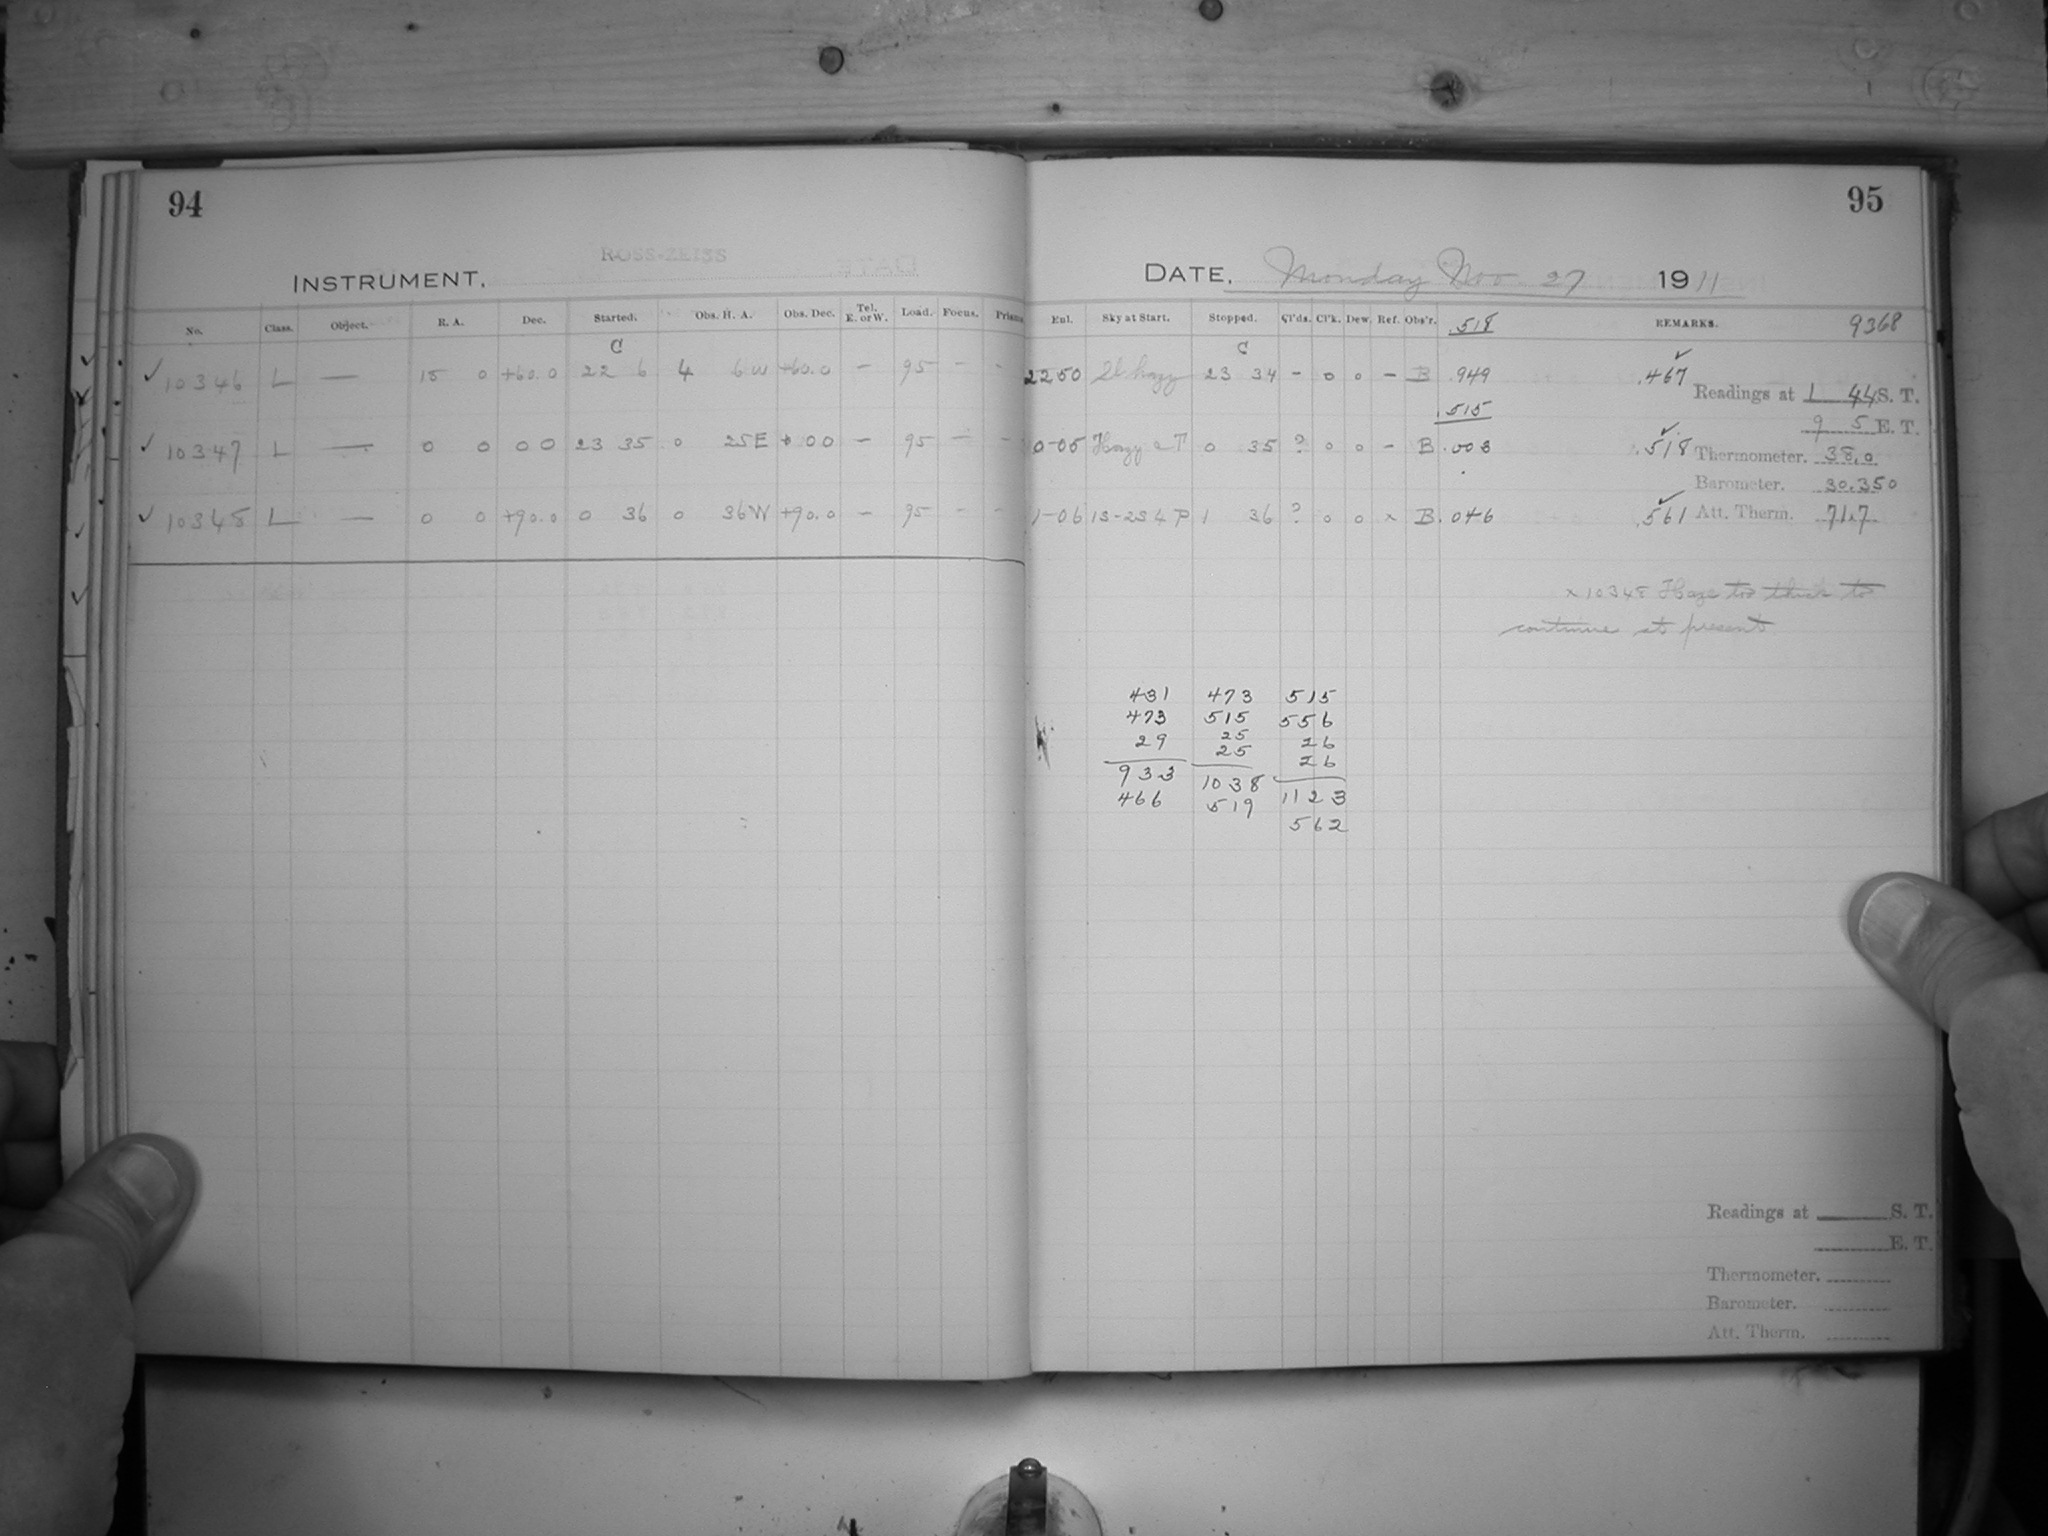 94
ROSS-ZEISS
INSTRUMENT.
No. Class. Object. R. A. Dec. Started. Obs. H. A. Obs. Dec. Tel. E. or W. Load. Focus. Prisms
C
✓ 10346 L — 18 0 +60.0 22 6 4 6 W +60.0 — 95 — —
✓ 10347 L — 0 0 0 0 23 35 0 25 E + 0 0 — 95 — —
✓ 10348 L — 0 0 +90.0 0 36 0 36 W +90.0 — 95 — —
95
DATE. Monday Nov. 27 1911
Eul. Sky at Start. Stopped. Cl'ds. Cl'k. Dew. Ref. Obs'r. .518 REMARKS. 9368
C
2250 Sl hazy 23 34 – 0 0 – B .949 .467 ✓
Readings at 1 44 S. T.
.515
9 5 E. T.
0-05 Hazy 0 35 ? 0 0 – B .003 .518 ✓
Thermometer. 38.0
Barometer. 30.350
1-06 1S-2S 4 P 1 36 ? 0 0 x B .046 .561 ✓
Att. Therm. 71.7
x 10348 Haze too thick to
continue at present
431 473 515
473 515 556
29 25 26
25 26
933 1038 1123
466 519 562
Readings at S. T.
E. T.
Thermometer.
Barometer.
Att. Therm.